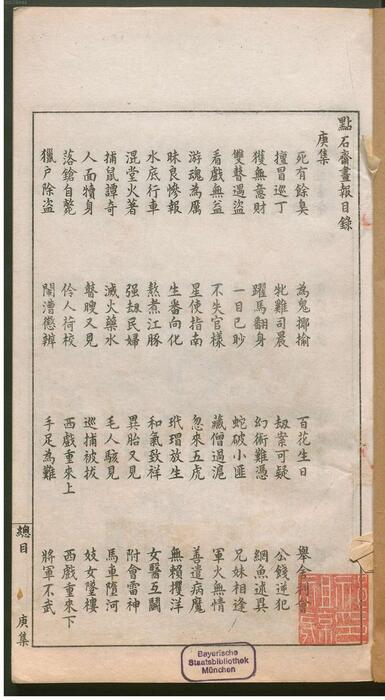 點石齋畫報目錄
庚集
死有餘臭 為鬼揶揄 百花生日
擅冒巡丁 牝雞司晨 劫案可疑 公錢逆犯
獲無意財 躍馬翻身 幻術難憑 網魚述異
雙瞽遇盜 一目已眇 蛇破小匪 兄妹相逢
看戲無益 不失官樣 藏僧過滬 軍火無情
游魂為厲 星使指南 忽來五虎 善遣病魔
昧良慘報 生番向化 玳瑁放生 無賴攫洋
水底行車 熬煮江豚 和氣致祥 女醫互鬬
混堂火著 强劫民婦 異胎又見 附會雷神
捕鼠譚奇 滅火藥水 毛人駭見 馬車墮河
人面犢身 瞽瞍又見 巡捕被拔 妓女墜樓
落鎗自斃 伶人荷校 西戲重來上 西戲重來下
獵戶除盜 鬧漕懲辦 手足為難 將軍不武
總目 庚集
Bayerische
Staatsbibliothek
München